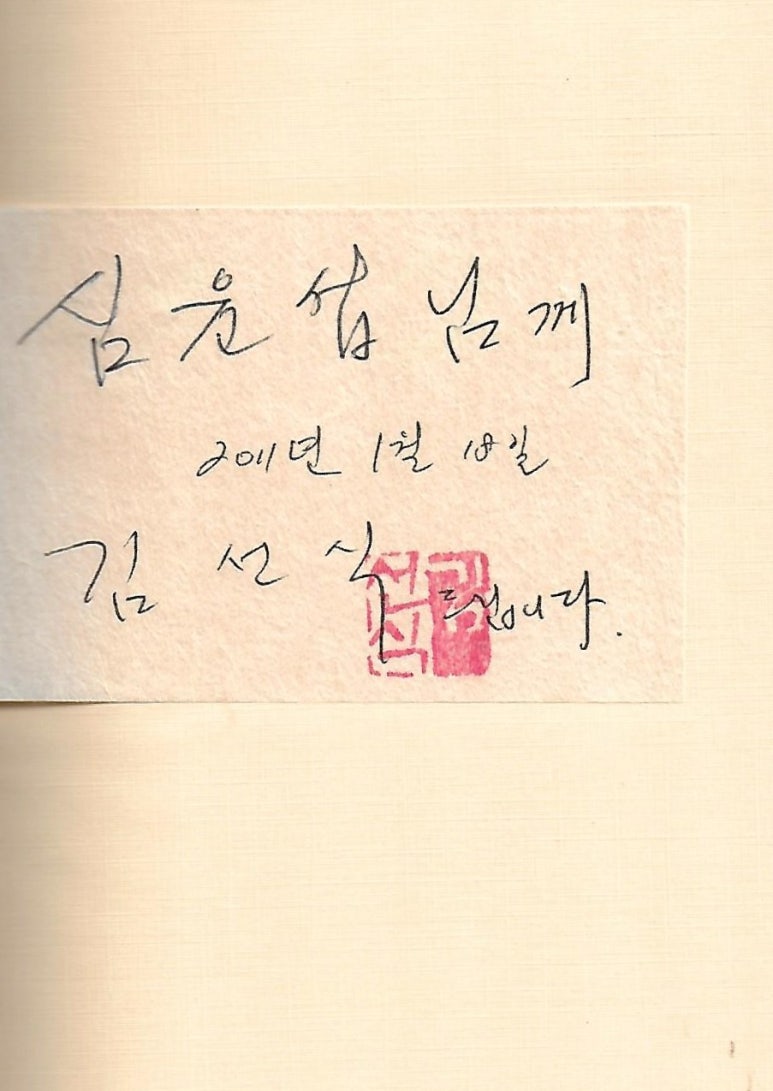 심윤섭 님께
2011년 1월 18일
김 선식 드립니다.